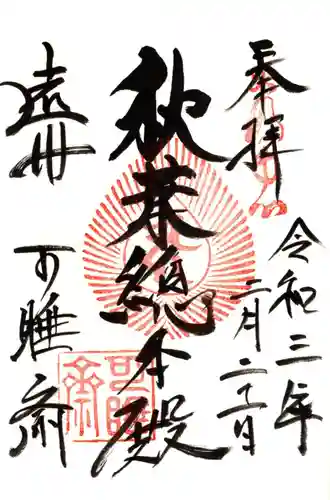 奉拝
令和三年
二月二十日
秋葉総本殿
遠州
可睡斎